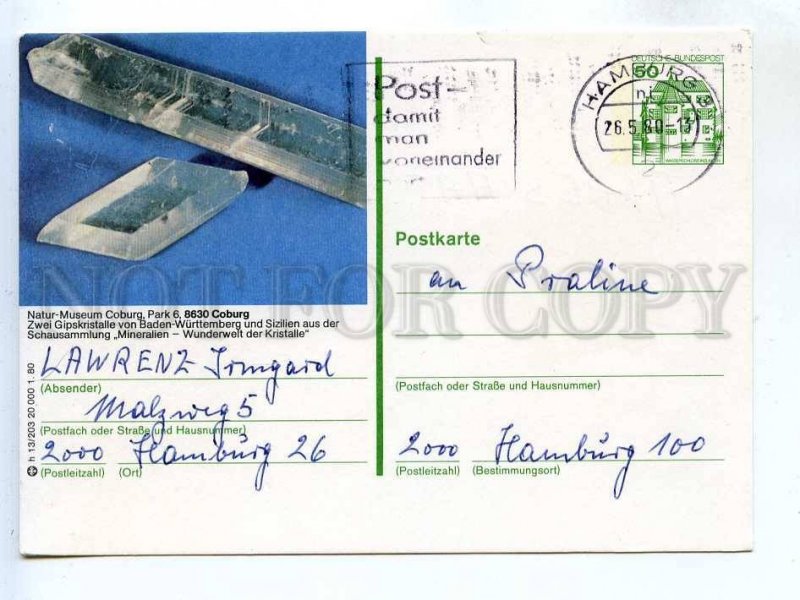 DEUTSCHE BUNDESPOST
50
HAMBURG
26.5.80-13
Post-
damit
man
voneinander
Postkarte
an Praline
Natur-Museum Coburg, Park 6, 8630 Coburg
Zwei Gipskristalle von Baden-Württemberg und Sizilien aus der
Schausammlung „Mineralien – Wunderwelt der Kristalle"
LAWRENZ Irmgard
(Absender)
Malzweg 5
(Postfach oder Straße und Hausnummer)
2000 Hamburg 26
(Postleitzahl) (Ort)
h 13/203 20 000 1. 80
(Postfach oder Straße und Hausnummer)
2000 Hamburg 100
(Postleitzahl) (Bestimmungsort)
NOT FOR COPY